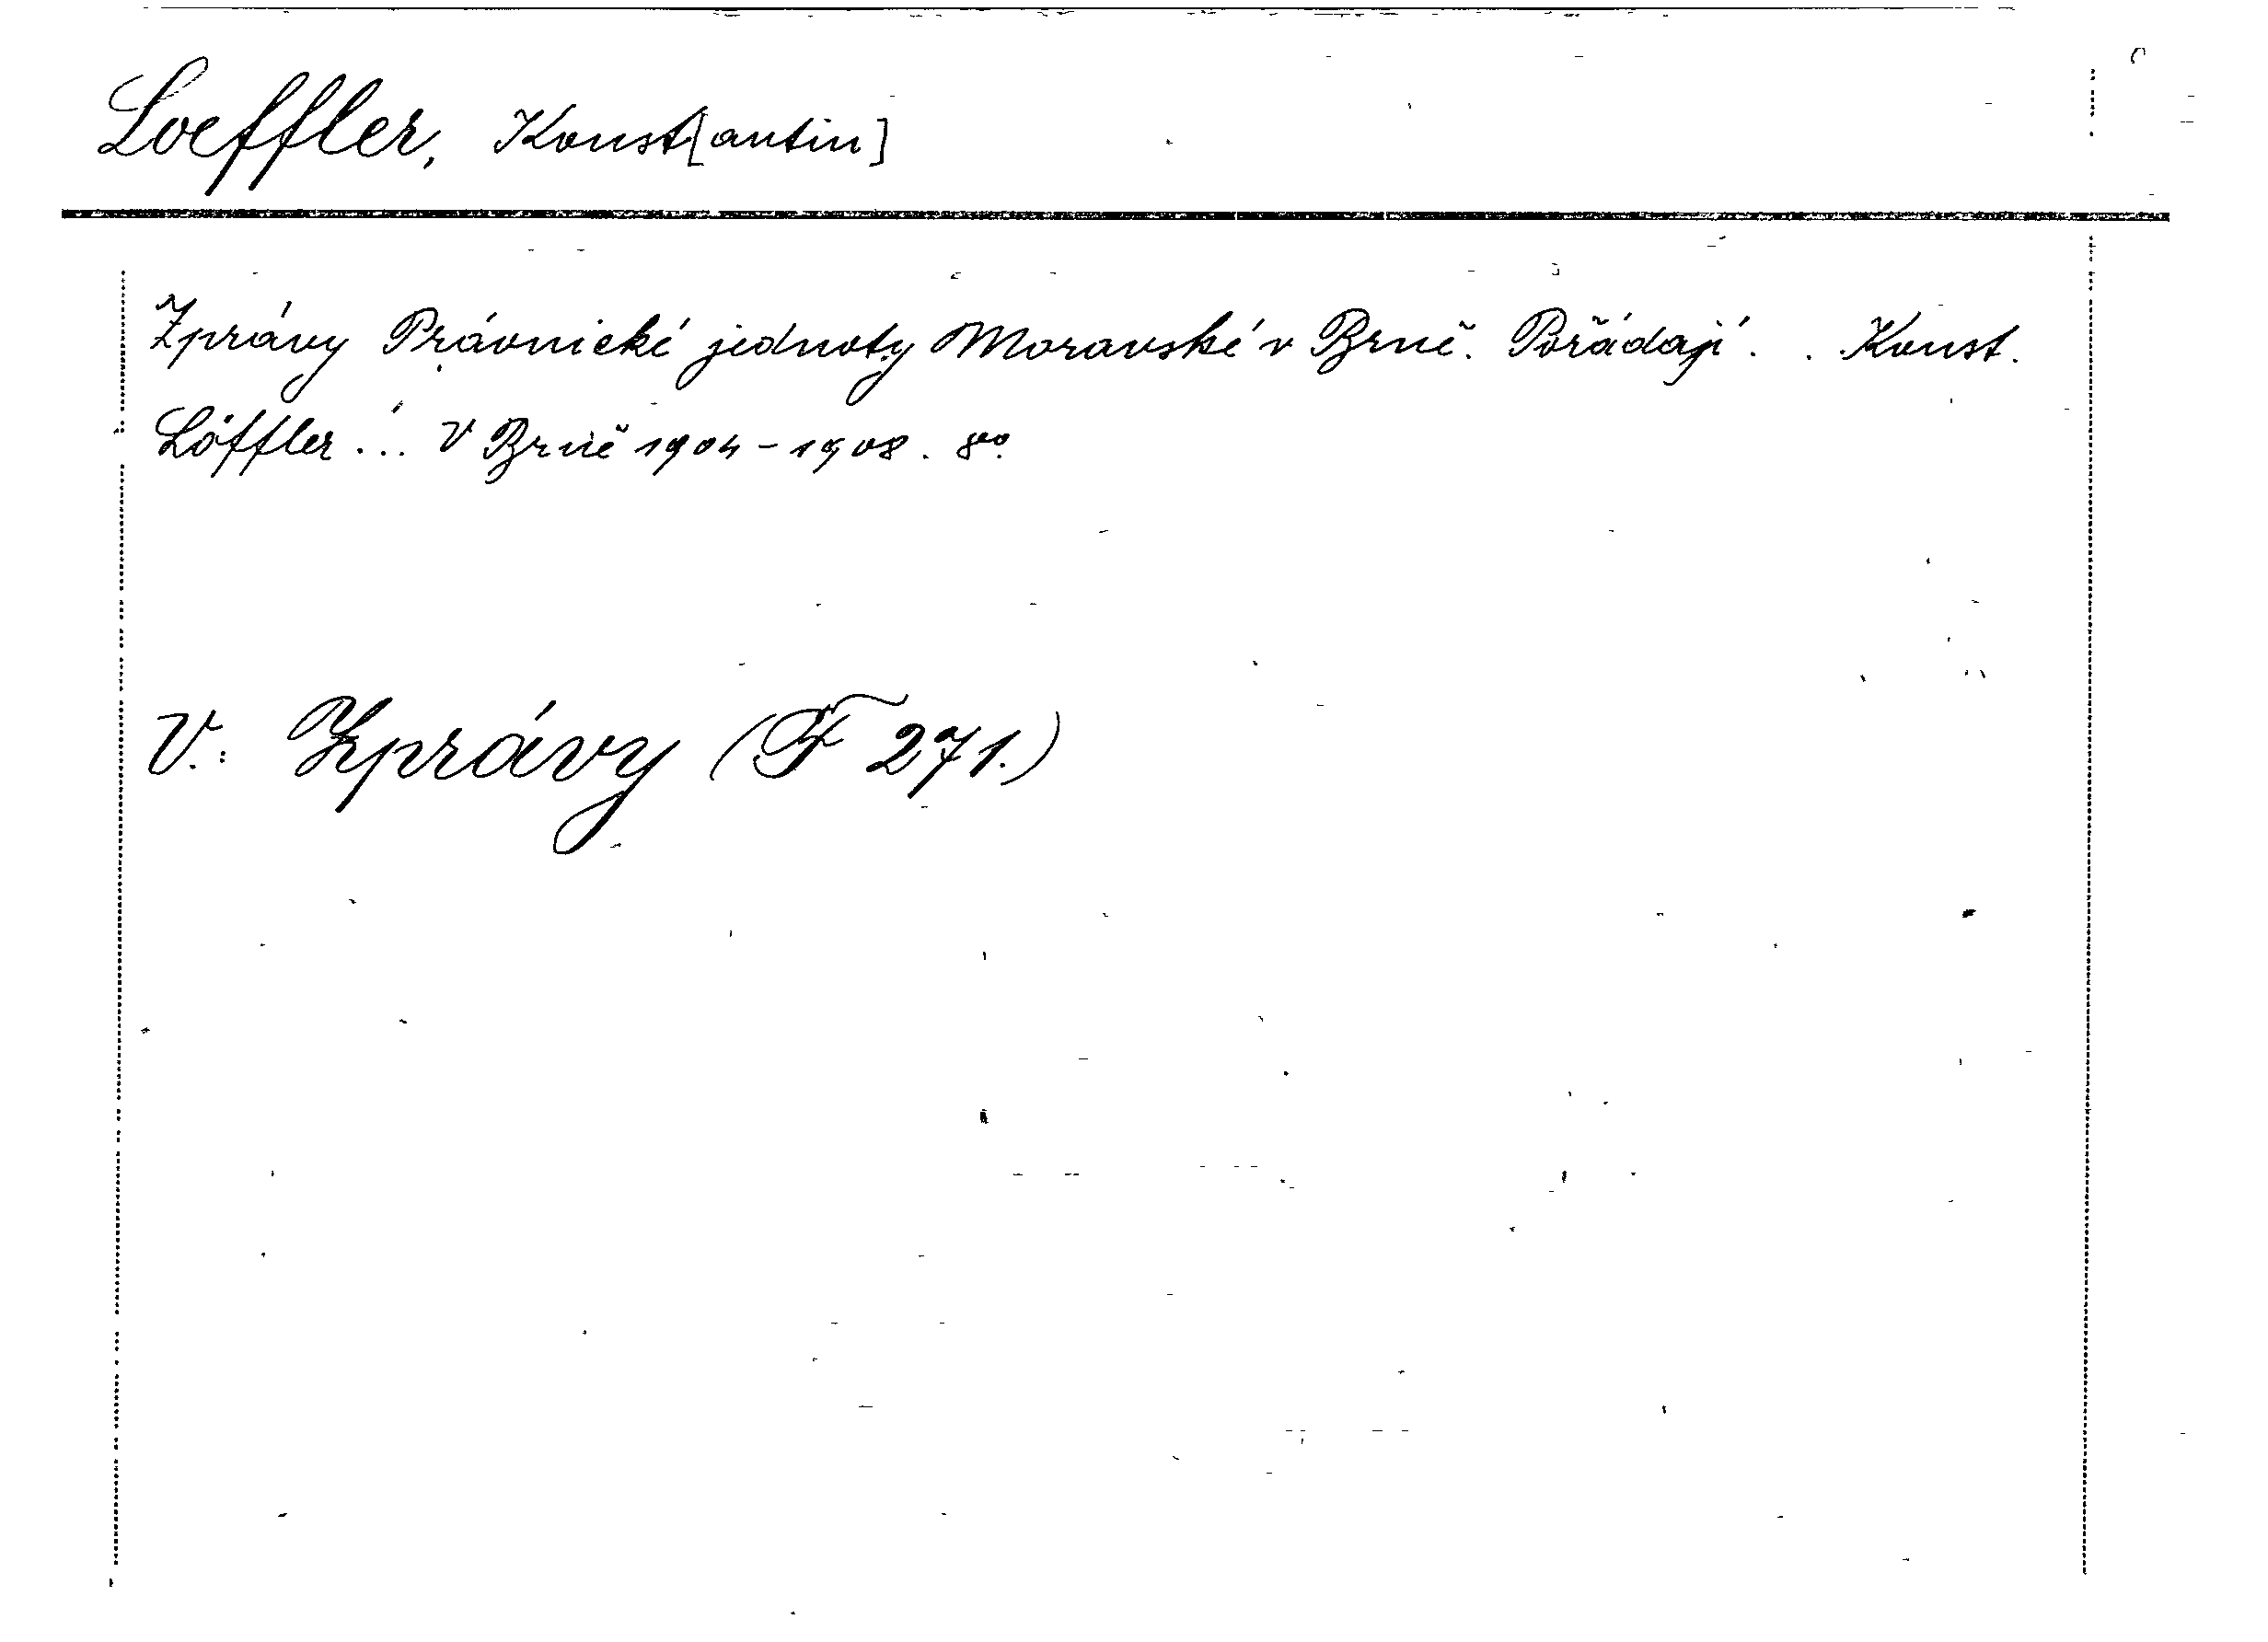 Loeffler, Konst[antin]
Zprávy Právnické jednoty Moravské v Brně. Pořádají . . . Konst.
Löffler ... V Brně 1904-1908. 8vo.
V.: Zprávy (F 271.)